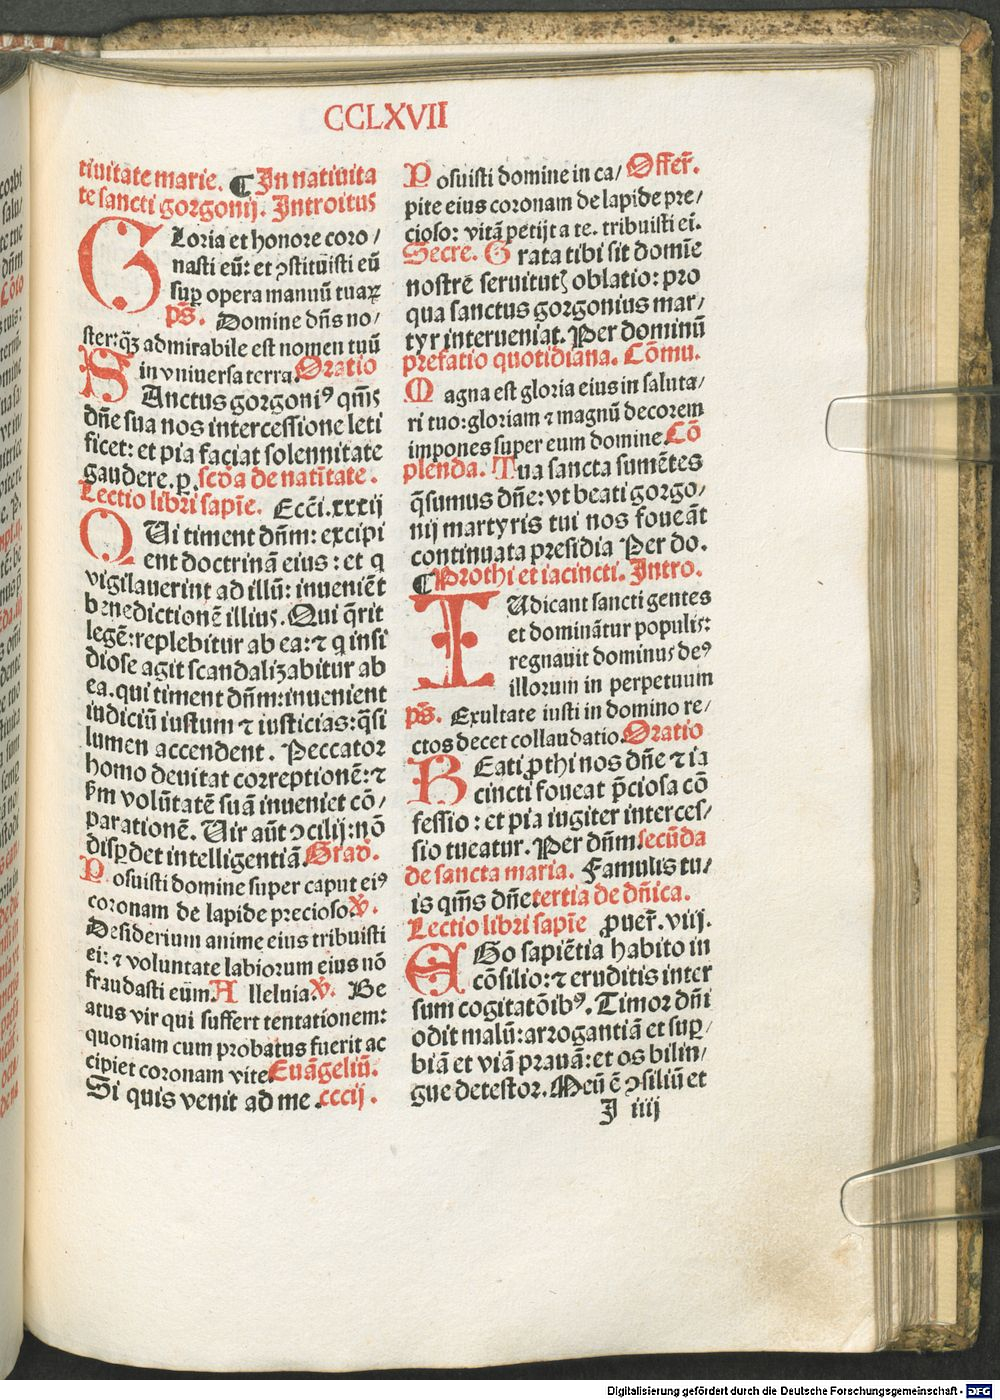 CCLXVII
tiuitate marie. ¶ In natiuita
te sancti gorgonij. Introitus
GLoria et honore coro/
nasti eū: et ꝯstituisti eū
suꝑ opera manuū tuaꝝ
ps̄. Domine dn̄s no/
ster: q̄ꝫ admirabile est nomen tuū
in vniuersa terra. Oratio
SAnctus gorgoniꝰ qm̄s
dn̄e sua nos intercessione leti
ficet: et pia faciat solennitate
gaudere. p. scd̄a de natītate.
Lectio libri sapīe. Ecc̄i. xxxij
QUi timent dn̄m: excipi
ent doctrinā eius: et q
vigilauerint ad illū: inueniēt
benedictionē illius. Qui q̄rit
legē: replebitur ab ea: ⁊ q insi
diose agit scandalizabitur ab
ea. qui timent dn̄m: inuenient
iudiciū iustum ⁊ iusticias: q̄si
lumen accendent. Peccator
homo deuitat correptionē: ⁊
ẜm volūtatē suā inueniet cō/
parationē. Uir aūt ꝯcilij: nō
disꝑdet intelligentiā. Grad̄.
Posuisti domine super caput eiꝰ
coronam de lapide precioso. v̄.
Desiderium anime eius tribuisti
ei: ⁊ voluntate labiorum eius nō
fraudasti eum. Alleluia. v̄. Be
atus vir qui suffert tentationem:
quoniam cum probatus fuerit ac
cipiet coronam vite. Euāgeliū.
Si quis venit ad me. cccij.
Posuisti domine in ca/ Offer̄.
pite eius coronam de lapide pre/
cioso: vitā petijt a te. tribuisti ei.
Secre. Grata tibi sit domīe
nostrē seruitutꝭ oblatio: pro
qua sanctus gorgonius mar/
tyr interueniat. Per dominū
prefatio quotidiana. Cōmu.
Magna est gloria eius in saluta/
ri tuo: gloriam ⁊ magnū decorem
impones super eum domine. Cō
plenda. Tua sancta sumētes
q̄sumus dn̄e: vt beati gorgo/
nij martyris tui nos foueāt
continuata presidia Per do.
¶ Prothi et iacincti. Intro.
IUdicant sancti gentes
et dominātur populis:
regnauit dominus deꝰ
illorum in perpetuum
ps̄. Exultate iusti in domino re/
ctos decet collaudatio. Oratio
BEati ꝓthi nos dn̄e ⁊ ia
cincti foueat p̄ciosa cō
fessio: et pia iugiter interces/
sio tueatur. Per dn̄m. secūda
de sancta maria. Famulis tu/
is qm̄s dn̄e. tertia de dn̄ica.
Lectio libri sapīe ꝓuer̄. viij.
EGo sapiētia habito in
cōsilio: ⁊ eruditis inter
sum cogitatōibꝰ. Timor dn̄i
odit malū: arrogantiā et suꝑ/
biā et viā prauā: et os bilin/
gue detestor. Meū ē ꝯsiliū et
I iiij
Digitalisierung gefördert durch die Deutsche Forschungsgemeinschaft - DFG